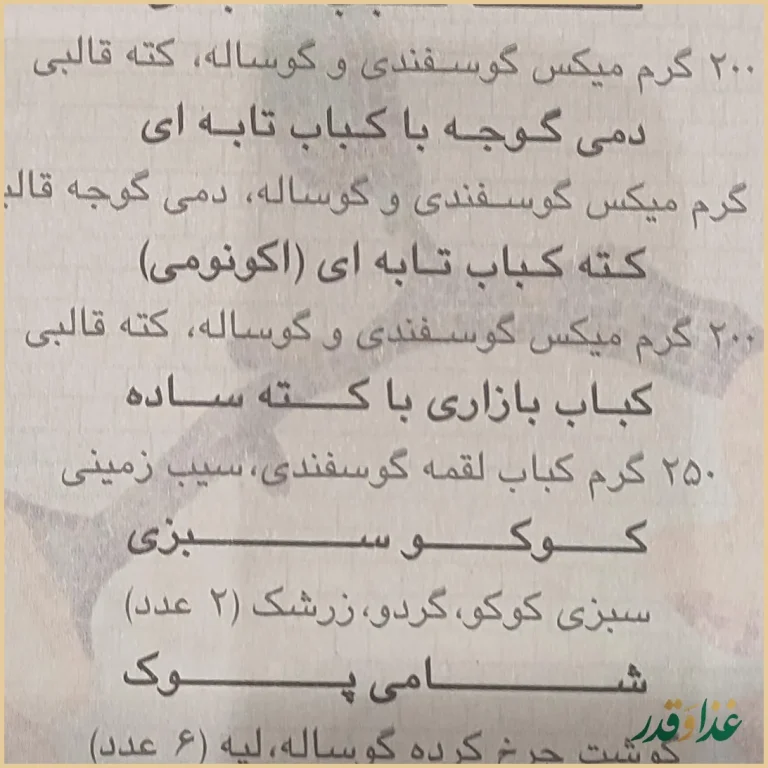 ۲۰۰ گرم میکس گوسفندی و گوساله، کته قالبی
دمی گوجه با کباب تابه ای
گرم میکس گوسفندی و گوساله، دمی گوجه
کته کباب تابه ای (اکونومی)
۲۰۰ گرم میکس گوسفندی و گوساله، کته قالبی
کباب بازاری با کته ساده
۲۵۰ گرم کباب لقمه گوسفندی، سیب زمینی
کوکو سبزی
سبزی کوکو، گردو، زرشک (۲ عدد)
شامی پوک
گوشت چرخ کرده گوساله، لپه (۶ عدد)
غذا و قدر